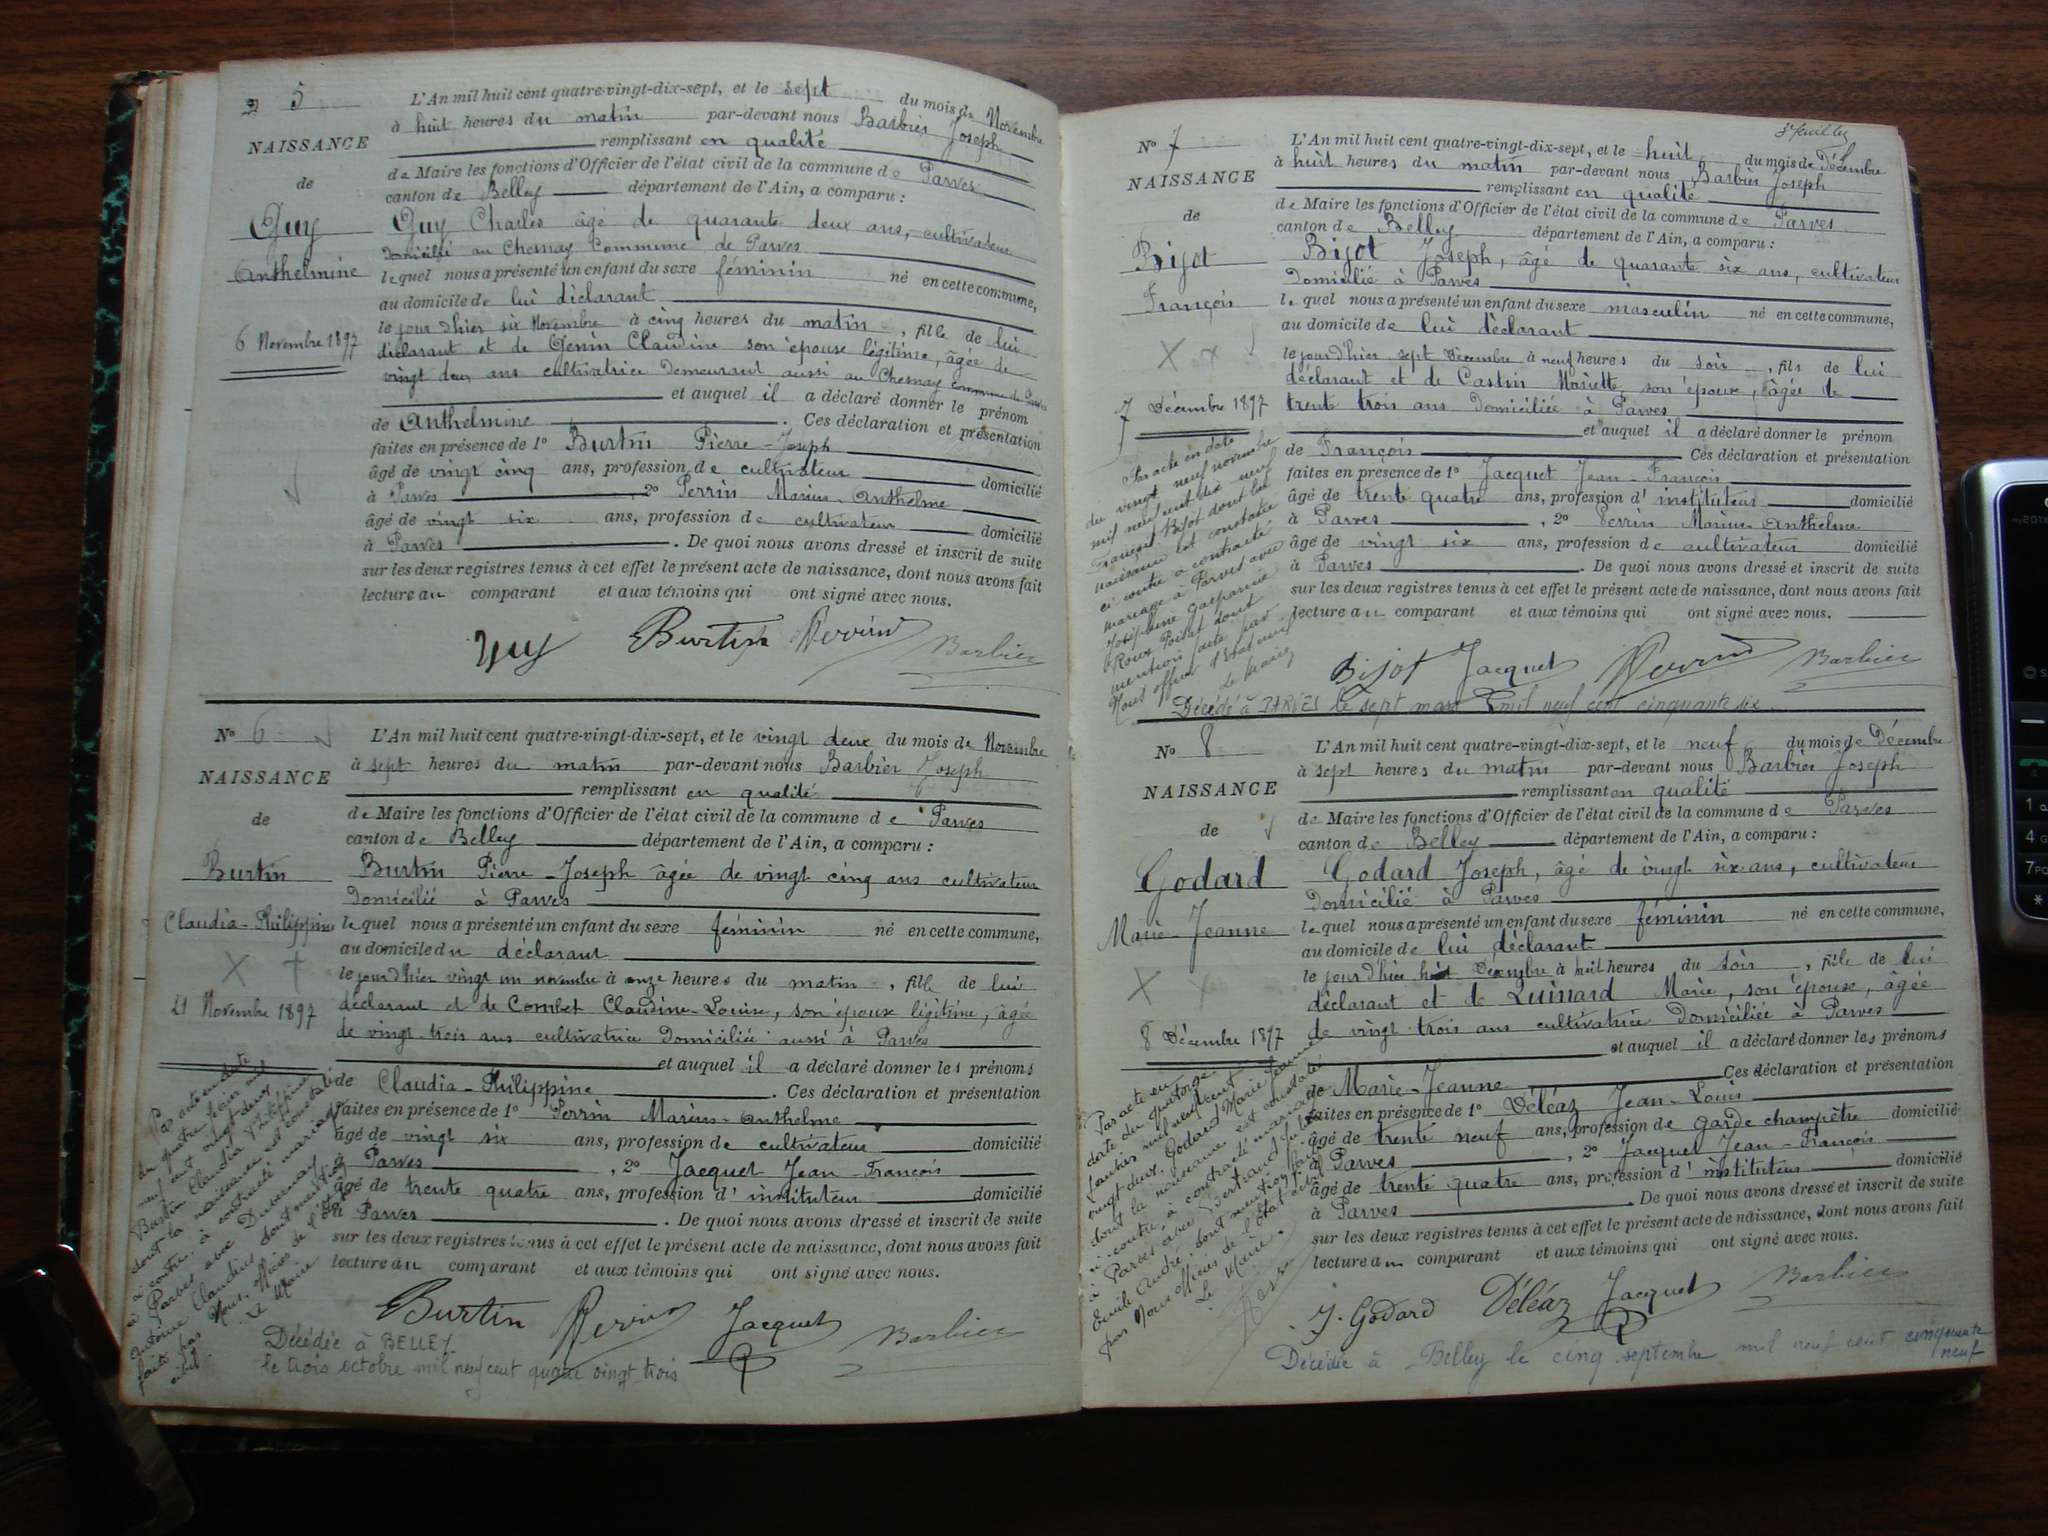 5
NAISSANCE
de
Guy
Anthelmine
6 Novembre 1897
L'An mil huit cent quatre-vingt-dix-sept, et le sept du mois de Novembre
à huit heures du matin par-devant nous Barbier Joseph
remplissant en qualité
de Maire les fonctions d'Officier de l'état civil de la commune de Parves
canton de Belley département de l'Ain, a comparu :
Guy Charles âgé de quarante deux ans, cultivateur
domicilié au Chesnay Commune de Parves
lequel nous a présenté un enfant du sexe féminin né en cette commune,
au domicile de lui déclarant
le jour d'hier six Novembre à cinq heures du matin, fille de lui
déclarant et de Genin Claudine son épouse légitime, âgée de
vingt deux ans cultivatrice demeurant aussi au Chesnay commune de Parves
et auquel il a déclaré donner le prénom
de Anthelmine . Ces déclaration et présentation
faites en présence de 1º Burtin Pierre-Joseph
âgé de vingt cinq ans, profession de cultivateur domicilié
à Parves , 2º Perrin Marius-Anthelme
âgé de vingt six ans, profession de cultivateur domicilié
à Parves . De quoi nous avons dressé et inscrit de suite
sur les deux registres tenus à cet effet le présent acte de naissance, dont nous avons fait
lecture au comparant et aux témoins qui ont signé avec nous.
Guy Burtin Perrin Barbier
Nº 6
NAISSANCE
de
Burtin
Claudia-Philippine
21 Novembre 1897
L'An mil huit cent quatre-vingt-dix-sept, et le vingt deux du mois de Novembre
à sept heures du matin par-devant nous Barbier Joseph
remplissant en qualité
de Maire les fonctions d'Officier de l'état civil de la commune de Parves
canton de Belley département de l'Ain, a comparu :
Burtin Pierre-Joseph âgée de vingt cinq ans cultivateur
Domicilié à Parves
lequel nous a présenté un enfant du sexe féminin né en cette commune,
au domicile du déclarant
le jour d'hier vingt un novembre à onze heures du matin, fille de lui
déclarant et de Combet Claudine-Louise, son épouse légitime, âgée
de vingt trois ans cultivatrice Domiciliée aussi à Parves
et auquel il a déclaré donner les prénoms
de Claudia-Philippine . Ces déclaration et présentation
faites en présence de 1º Perrin Marius-Anthelme
âgé de vingt six ans, profession de cultivateur domicilié
à Parves , 2º Jacquet Jean-François
âgé de trente quatre ans, profession d'instituteur domicilié
à Parves . De quoi nous avons dressé et inscrit de suite
sur les deux registres tenus à cet effet le présent acte de naissance, dont nous avons fait
lecture au comparant et aux témoins qui ont signé avec nous.
Par acte en date
du quatre février mil
neuf cent vingt deux
Burtin Claudia Philippine
dont la naissance est constatée
ci contre, a contracté mariage
à Parves avec Dubernay
Antoine Claudius dont mention
faite par Nous, officier de l'état
civil. Le Maire
Burtin Perrin Jacquet Barbier
Décédée à BELLEY
le trois octobre mil neuf cent quatre vingt trois
3e feuillet
Nº 7
NAISSANCE
de
Bijot
François
7 Décembre 1897
L'An mil huit cent quatre-vingt-dix-sept, et le huit du mois de Décembre
à huit heures du matin par-devant nous Barbier Joseph
remplissant en qualité
de Maire les fonctions d'Officier de l'état civil de la commune de Parves
canton de Belley département de l'Ain, a comparu :
Bijot Joseph, âgé de quarante six ans, cultivateur
Domicilié à Parves
lequel nous a présenté un enfant du sexe masculin né en cette commune,
au domicile de lui déclarant
le jour d'hier sept Décembre à neuf heures du soir, fils de lui
déclarant et de Castin Mariette son épouse, âgée de
trente trois ans Domiciliée à Parves
et auquel il a déclaré donner le prénom
de François Ces déclaration et présentation
faites en présence de 1º Jacquet Jean-François
âgé de trente quatre ans, profession d'instituteur domicilié
à Parves , 2º Perrin Marius-Anthelme
âgé de vingt six ans, profession de cultivateur domicilié
à Parves . De quoi nous avons dressé et inscrit de suite
sur les deux registres tenus à cet effet le présent acte de naissance, dont nous avons fait
lecture au comparant et aux témoins qui ont signé avec nous.
Par acte en date
du vingt neuf novembre
mil neuf cent dix neuf
François Bijot dont la
naissance est constatée
ci contre a contracté
mariage à Parves avec
Joséphine Gasparine
Roux Poisat dont
mention faite par
Nous officier d'Etat civil
Le Maire
Bijot Jacquet Perrin Barbier
Décédé à PARVES le sept mars mil neuf cent cinquante six
Nº 8
NAISSANCE
de
Godard
Marie-Jeanne
8 Décembre 1897
L'An mil huit cent quatre-vingt-dix-sept, et le neuf du mois de Décembre
à sept heures du matin par-devant nous Barbier Joseph
remplissant en qualité
de Maire les fonctions d'Officier de l'état civil de la commune de Parves
canton de Belley département de l'Ain, a comparu :
Godard Joseph, âgé de vingt six ans, cultivateur
Domicilié à Parves
lequel nous a présenté un enfant du sexe féminin né en cette commune,
au domicile de lui déclarant
le jour d'hier huit Décembre à huit heures du soir, fille de lui
déclarant et de Luinard Marie, son épouse, âgée
de vingt trois ans cultivatrice Domiciliée à Parves
et auquel il a déclaré donner les prénoms
de Marie-Jeanne Ces déclaration et présentation
faites en présence de 1º Déléaz Jean-Louis
âgé de trente neuf ans, profession de garde champêtre domicilié
à Parves , 2º Jacquet Jean-François
âgé de trente quatre ans, profession d'instituteur domicilié
à Parves . De quoi nous avons dressé et inscrit de suite
sur les deux registres tenus à cet effet le présent acte de naissance, dont nous avons fait
lecture au comparant et aux témoins qui ont signé avec nous.
Par acte en
date du quatorze
Janvier mil neuf cent
vingt deux, Godard Marie Jeanne
dont la naissance est constatée
ci-contre, a contracté mariage
à Parves avec Bertrand
Emile André, dont mention faite
par Nous officier de l'état civil
Le Maire.
J. Godard Déléaz Jacquet Barbier
Décédée à Belley le cinq septembre mil neuf cent cinquante
neuf